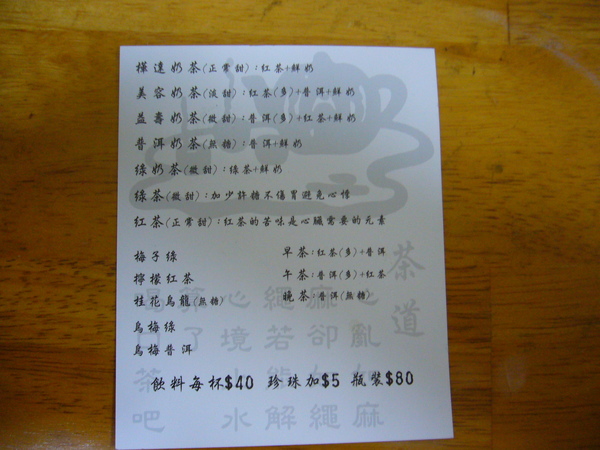 樺達奶茶(正常甜):紅茶+鮮奶
美容奶茶(淡甜):紅茶(多)+普洱+鮮奶
益壽奶茶(微甜):普洱(多)+紅茶+鮮奶
普洱奶茶(無糖):普洱+鮮奶
綠奶茶(微甜):綠茶+鮮奶
綠茶(微甜):加少許糖不傷胃避免心悸
紅茶(正常甜):紅茶的苦味是心臟需要的元素
梅子綠
檸檬紅茶
桂花烏龍(無糖)
烏梅綠
烏梅普洱
早茶:紅茶(多)+普洱
午茶:普洱(多)+紅茶
晚茶:普洱(無糖)
飲料每杯$40 珍珠加$5 瓶裝$80
茶道
心亂如麻
麻卻如繩
繩若能解
心境小水
茶吧